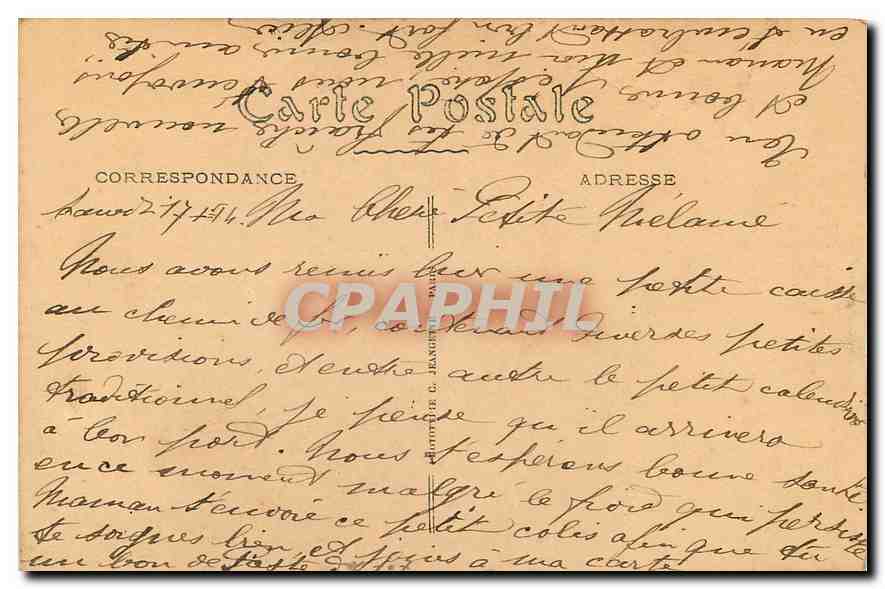 Carte Postale
CORRESPONDANCE
ADRESSE
Ma Chere Petite Mélanie
Nous avons remis hier une petite caisse
au chemin de fer, contenant diverses petites
provisions, et entre autre le petit calendrier
traditionnel, je pense qu'il arrivera
à bon port. Nous t'espérons bonne santé
en ce moment malgré le froid qui persiste
Maman t'envoie ce petit colis afin que tu
te soignes bien et joins à ma carte
un bon de Poste de
En attendant de tes fraîche nouvelles
et bonnes j'espère, nous t'envoyons
maman et moi mille bons amitiés
en t'embrassant bien fort
PHOTOTYPIE C. JEANGETTE PARIS
CPAPHIL